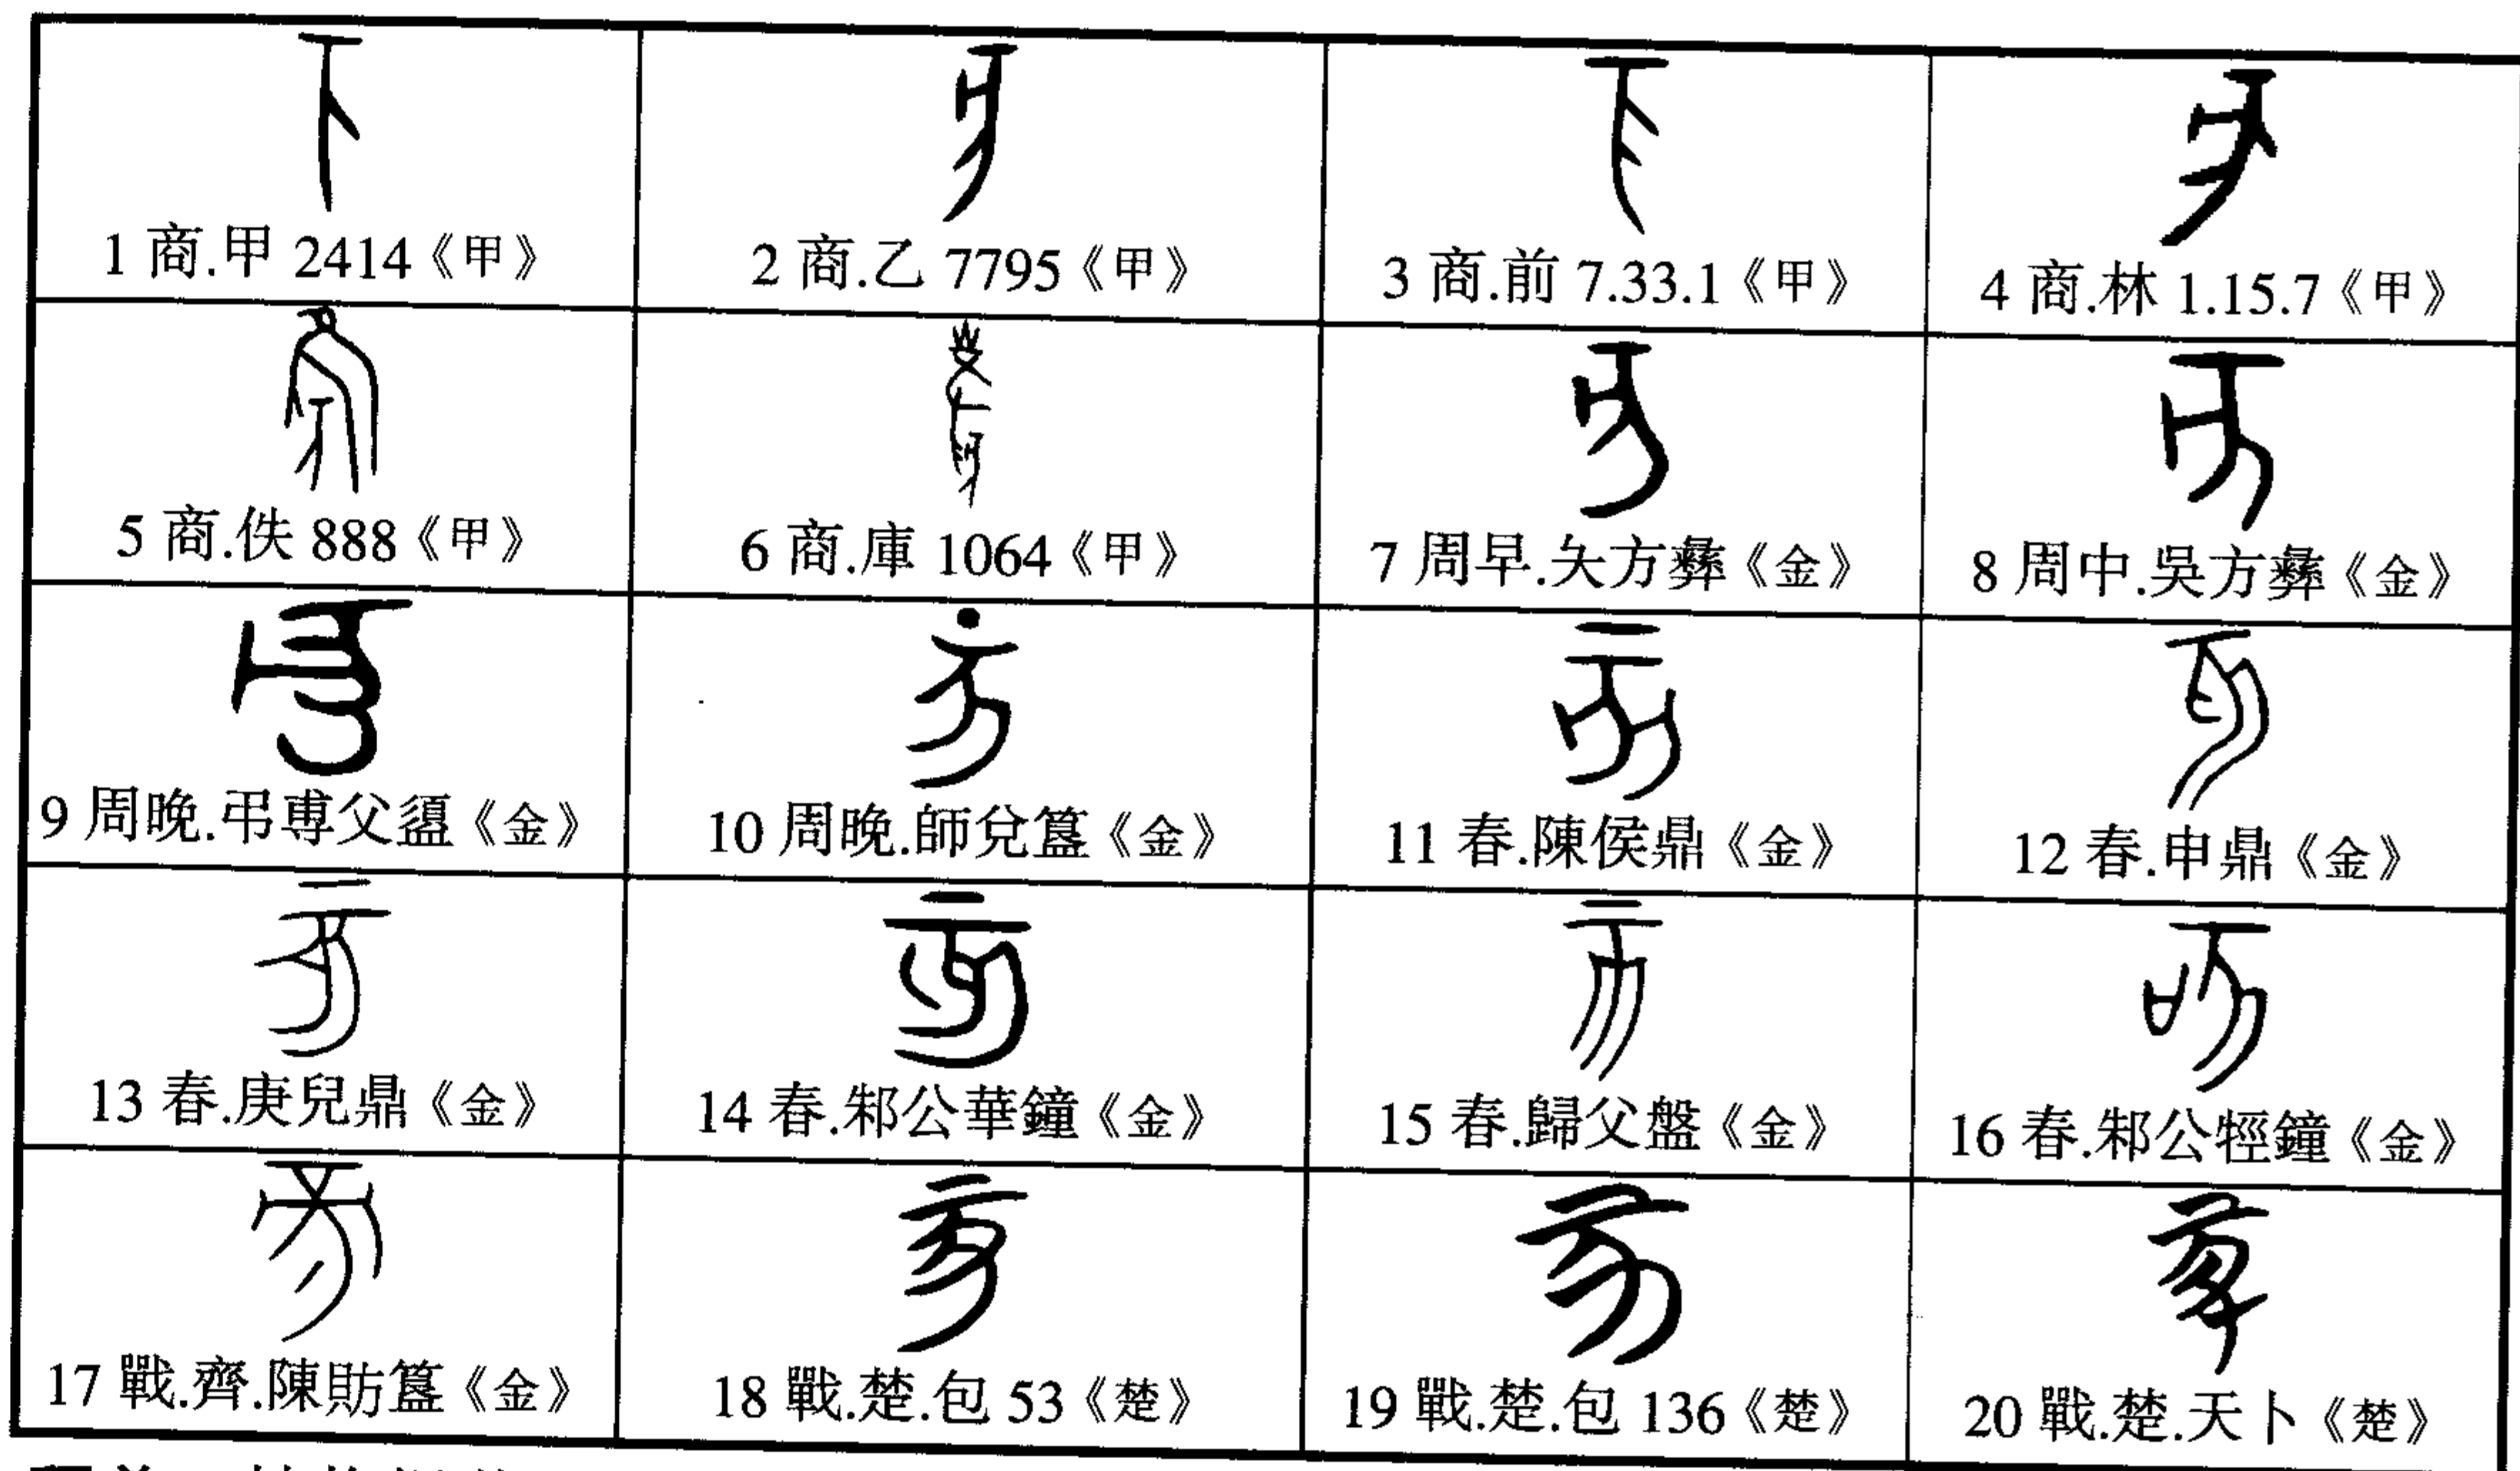 1 商.甲 2414《甲》
2 商.乙 7795《甲》
3 商.前 7.33.1《甲》
4 商.林 1.15.7《甲》
5 商.佚 888《甲》
6 商.庫 1064《甲》
7 周早.夨方彝《金》
8 周中.吳方彝《金》
9 周晚.弔專父盨《金》
10 周晚.師兌簋《金》
11 春.陳侯鼎《金》
12 春.申鼎《金》
13 春.庚兒鼎《金》
14 春.邾公華鐘《金》
15 春.歸父盤《金》
16 春.邾公牼鐘《金》
17 戰.齊.陳肪簋《金》
18 戰.楚.包 53《楚》
19 戰.楚.包 136《楚》
20 戰.楚.天卜《楚》